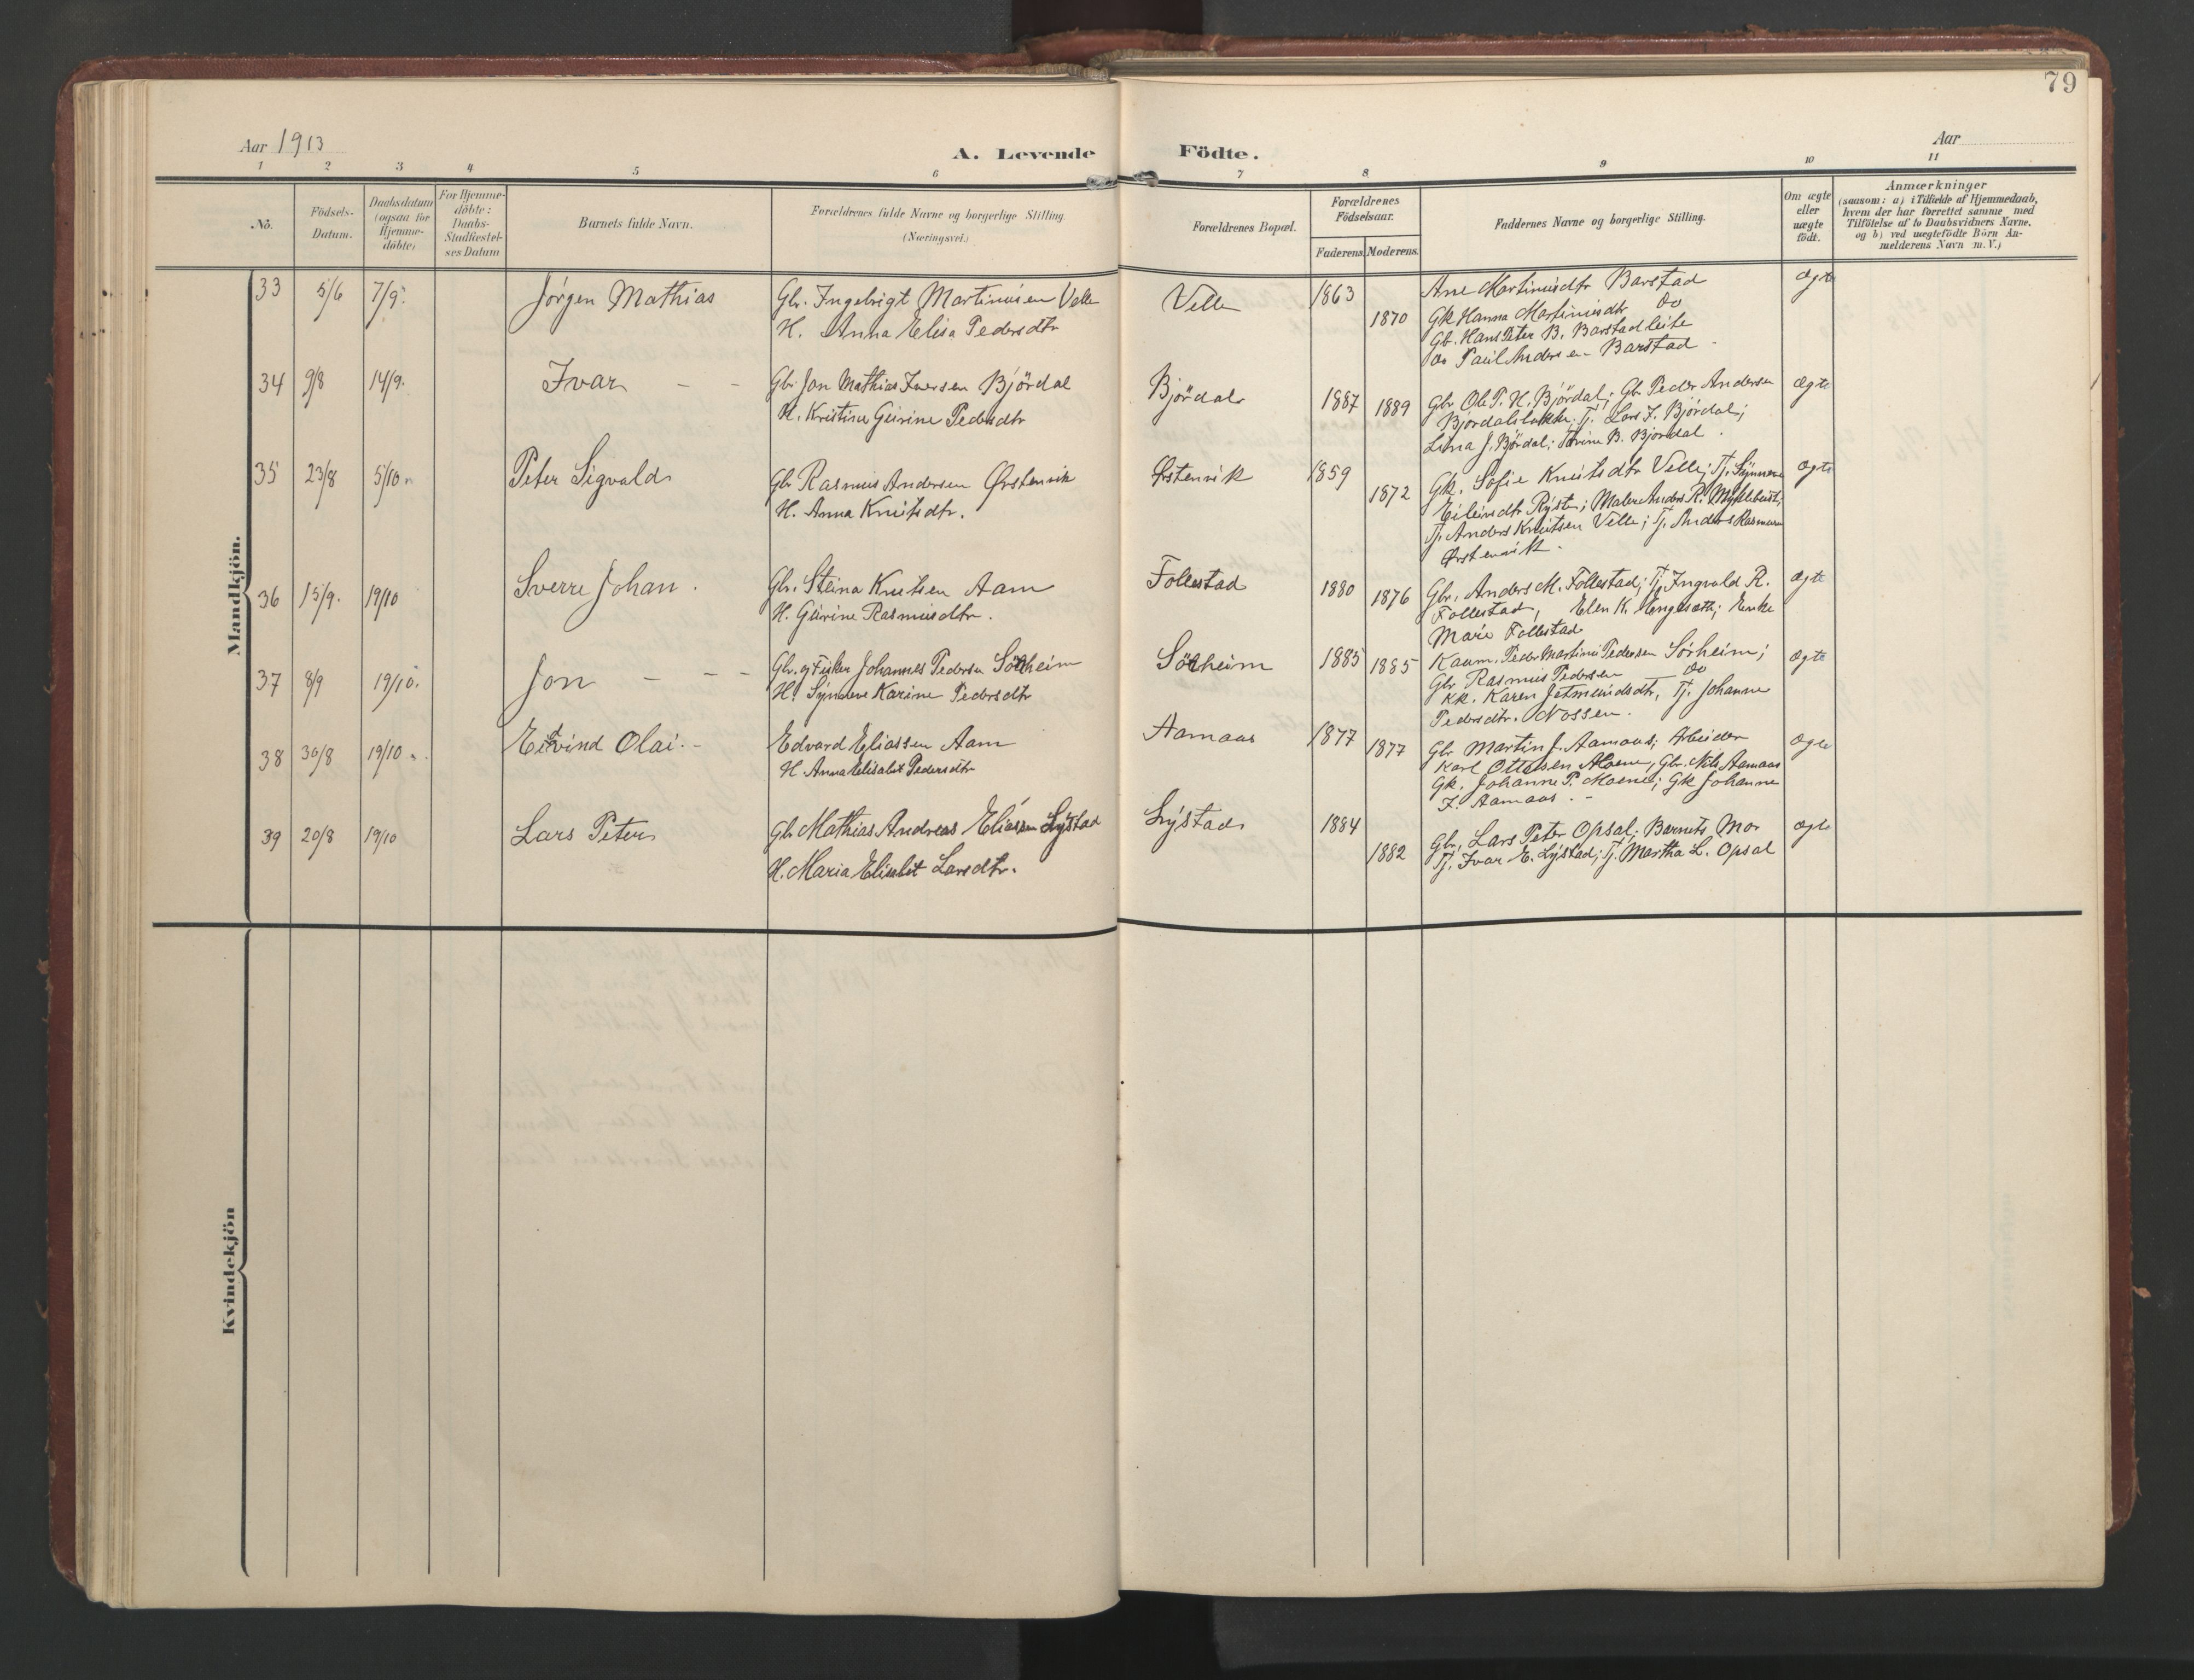 79
Aar 1913
A. Levende Födte.
Aar
1 2 3 4 5 6 7 8 9 10 11
No.
Födsels-Datum.
Daabsdatum (ogsaa for Hjemme-döbte)
For Hjemme-döbte: Daabs-Stadfæstel-ses Datum
Barnets fulde Navn.
Forældrenes fulde Navne og borgerlige Stilling.
(Næringsvei.)
Forældrenes Bopæl.
Forældrenes Födselsaar.
Faderens. Moderens.
Faddernes Navne og borgerlige Stilling.
Om ægte eller uægte födt.
Anmærkninger
(saasom: a) i Tilfælde af Hjemmedaab,
hvem der har forrettet samme med
Tilföielse af to Daabsvidners Navne.
og b) ved uægtefödte Börn An-
melderens Navn m.V.)
Mandkjön.
33 5/6 7/9. Jørgen Mathias
Gbr. Ingebrigt Martinusen Velle
H. Anna Elisa Pedersdtr
Velle 1863 1870
Ane Martinusdtr Barstad
Gk Hanna Martinusdtr Do
Gb. Hans Peter B. Barstadleite
Do Paul Andersen Barstad
Ægte
34 9/8 14/9. Ivar - -
Gbr. Jon Mathias Iversen Bjørdal
H. Kristine Gurine Pedersdtr
Bjørdal 1887 1889
Gbr Ole P. H. Bjørdal; Gb. Peder Andersen
Bjørdalslukke; Tj. Lars J. Bjørdal;
Lina J. Bjørdal; B. Bjørdal.
Ægte
35 23/8 5/10 Peter Sigvald
Gbr Rasmus Andersen Ørstenvik
H. Anna Knutsdtr.
Ørstenvik 1859 1872
Gk. Sofie Knutsdtr Velle; Tj. Synnøve
Eileivsdtr Ryste; Maler Anders R. Myklebust;
Tj. Anders Knutsen Velle; Tj. Anders Rasmusen
Ørstenvik.
Ægte
36 15/9. 19/10 Sverre Johan.
Gbr. Steina Knutsen Aam
H. Gurine Rasmusdtr.
Follestad 1880 1876
Gbr. Anders M. Follestad; Tj. Ingvald R.
Follestad, Elen K. Engeseth; Enke
Mari Follestad
Ægte
37 8/9 19/10. Jon - - -
Gbr. og Fisker Johannes Pedersen Sørheim
H. Synnøve Karine Pedersdtr
Sørheim 1885 1885
Kaarm. Peder Martinus Pedersen Sørheim;
Gbr Rasmus Pedersen Do
KK. Karen Jetmundsdtr, Tj. Johanne
Pedersdtr. Nossen.
Ægte
38 30/8 19/10 Eivind Olai. -
Edvard Eliassen Aam
H. Anna Elisabet Pedersdtr
Aamaas 1877 1877
Gbr Martin J. Aamaas; Arbeider
Karl Ottesen Moene, Gbr. Nils Aamaas
Gk. Johanne P. Moene; Gk Johanne
J. Aamaas. -
Ægte
39 20/8 19/10 Lars Peter
Gbr Mathias Andreas Eliassen Lystad
H. Maria Elisabet Larsdtr.
Lystad 1884 1882
Gbr. Lars Peter Opsal; Barnets Mor
Tj. Ivar E. Lystad; Tj. Martha L. Opsal
Ægte
Kvindekjön